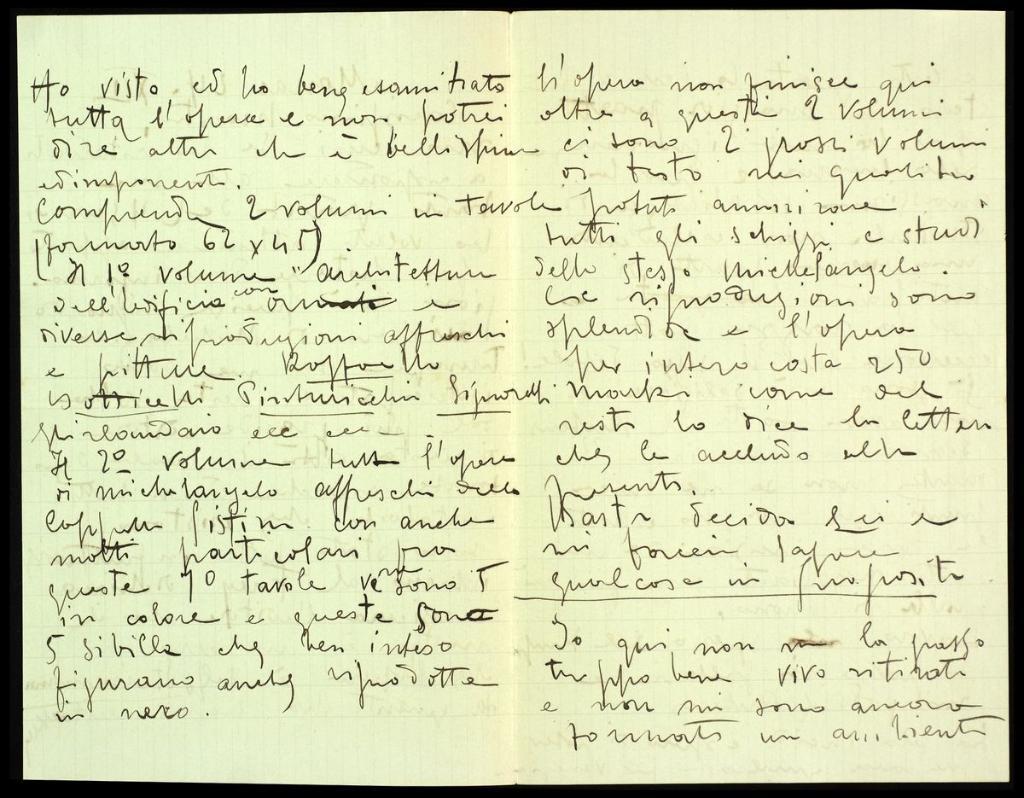 Ho visto ed ho bene esaminato
tutta l'opera e non potrei
dire altro che è bellissima
ed imponente.
Comprende 2 volumi in tavole
(formato 62 x 45).
Il 1º volume "architettura
dell'edificio con ornati e
diverse riproduzioni affreschi
e pitture. Raffaello
Botticelli Pinturicchio Signorelli
Ghirlandaio ecc ecc
Il 2º volume tutta l'opera
di Michelangelo affreschi della
Cappella Sistina con anche
molti particolari fra
queste 70 tavole ve ne sono 5
in colore e queste sono
5 sibille che ben inteso
figurano anche riprodotte
in nero.
L'opera non finisce qui
oltre a questi 2 volumi
ci sono 2 grossi volumi
di testo nei quali ho
potuto ammirare
tutti gli schizzi e studi
dello stesso Michelangelo.
Le riproduzioni sono
splendide e l'opera
per intero costa 250
marki come del
resto lo dice la lettera
che le accludo alla
presente.
Basta decida Lei e
mi faccia sapere
qualcosa in proposito
Io qui non la passo
troppo bene vivo ritirato
e non mi sono ancora
formato un ambiente